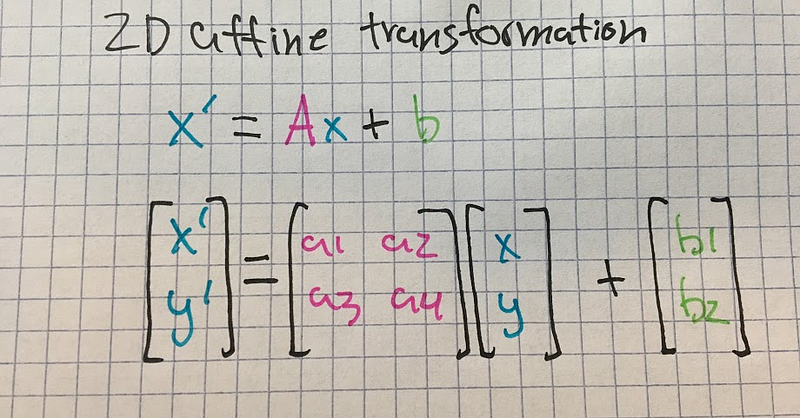 2D affine transformation
x' = Ax + b
[x' y'] = [a1 a2 a3 a4] [x y] + [b1 b2]